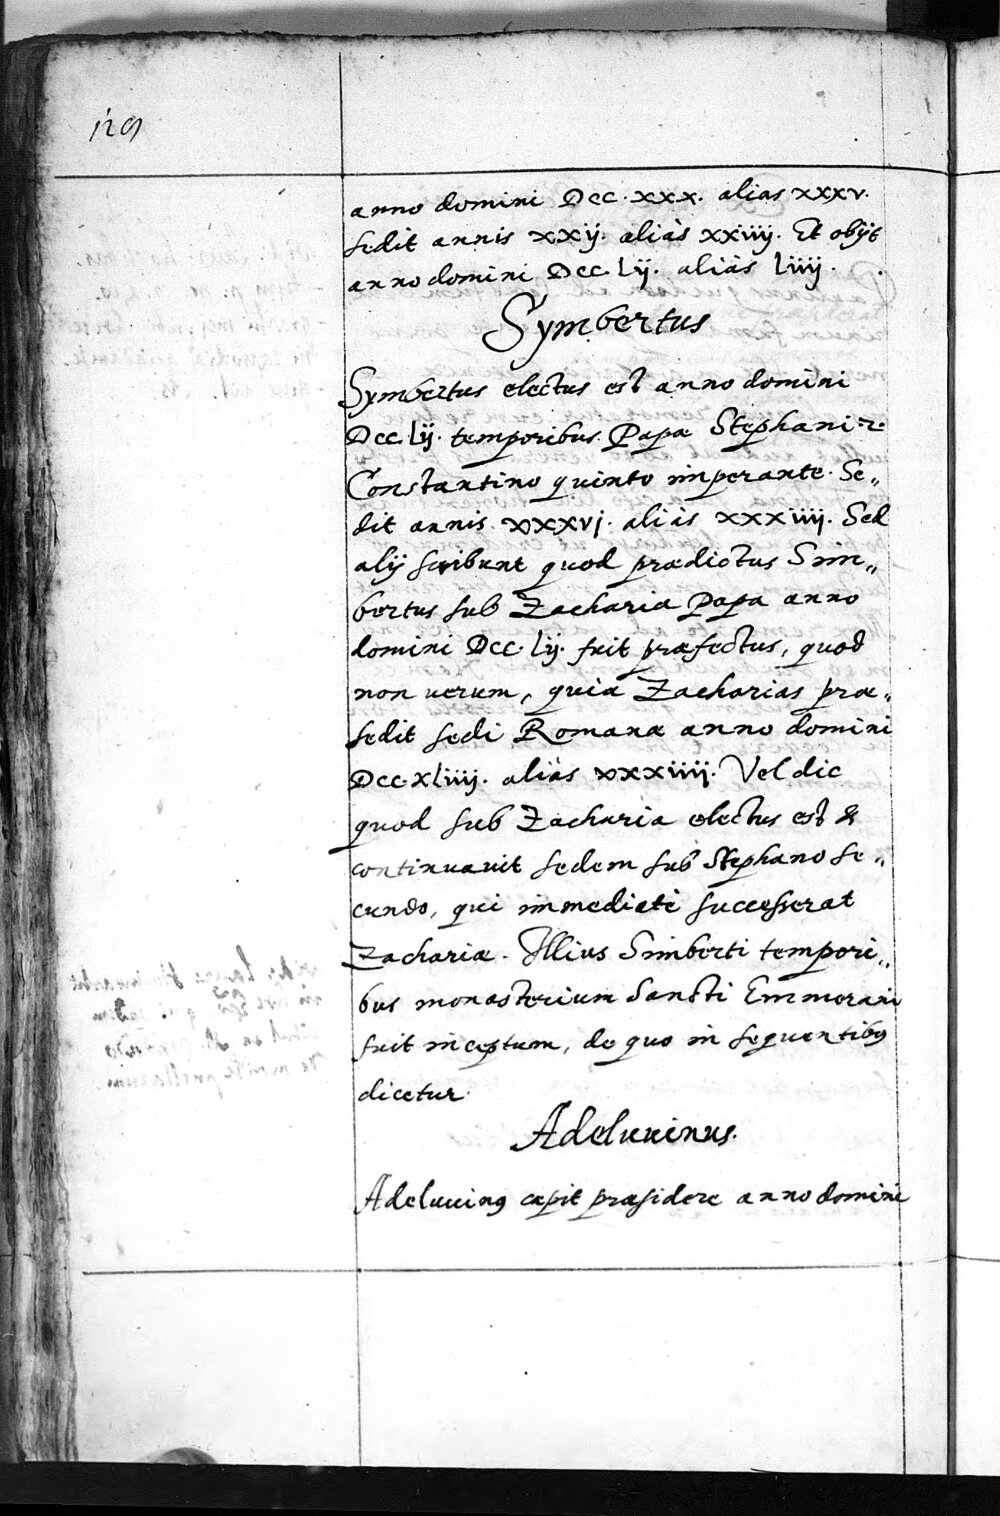 129
anno domini Dcc. xxx. alias xxxv.
sedit annis xxij. aliàs xxiiij. Et obijt
anno domini Dcc. Lij. aliàs Liiij.
Symbertus
Symbertus electus est anno domini
Dcc. Lij. temporibus Papæ Stephani 2.
Constantino quinto imperante. Se„
dit annis xxxvj. aliàs xxxiiij. Sed
alij scribunt quod prædictus Sim„
bertus sub Zacharia Papa anno
domini Dcc. Lij. fuit præfectus, quod
non uerum, quia Zacharias præ„
sedit sedi Romanæ anno domini
Dcc. xLiiij. aliàs xxxiiij. Vel dic
quod sub Zacharia electus est &
continuauit sedem sub Stephano se„
cundo, qui immediatè successerat
Zachariæ. Illius Simberti tempori„
bus monasterium Sancti Emmerani
fuit inceptum, de quo in sequentibus
dicetur.
Adeluuinus.
Adeluuing cæpit præsidere anno domini